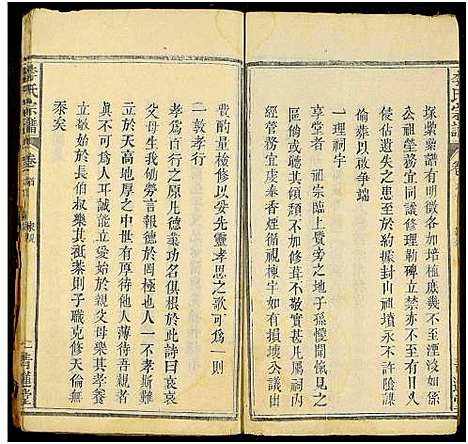 李氏宗譜
塚業鱗譜有明徵各如培植庶幾不至湮没如與
公祖堂務宜同議修理勒碑立禁亦不至
遺廹失之患至於約據封山祖墳永不許陰謀
偷葬以啟爭端
一理祠宇
享堂者 祖宗臨上質旁之地子孫慢聞愾見以
將其誠者如不加修葺不敬實甚凡屬祠内
經管務宜虔奉香煙循視棟宇如有損壞公議出
費酌量檢修以妥先靈孝思之歌可為一則
二敦孝行
孝為百行之原凡德業功名俱根於此詩曰哀哀
父母生我劬勞言報德於罔極也人一不孝斯難
立於天高地厚之中世有厚於他人薄待吾親者
亦未之思耳誠能立愛始於親父母樂其孝養
長長伯叔樂其祗恭則子職克修天倫無
忝矣
李氏宗譜
卷
青蓮堂